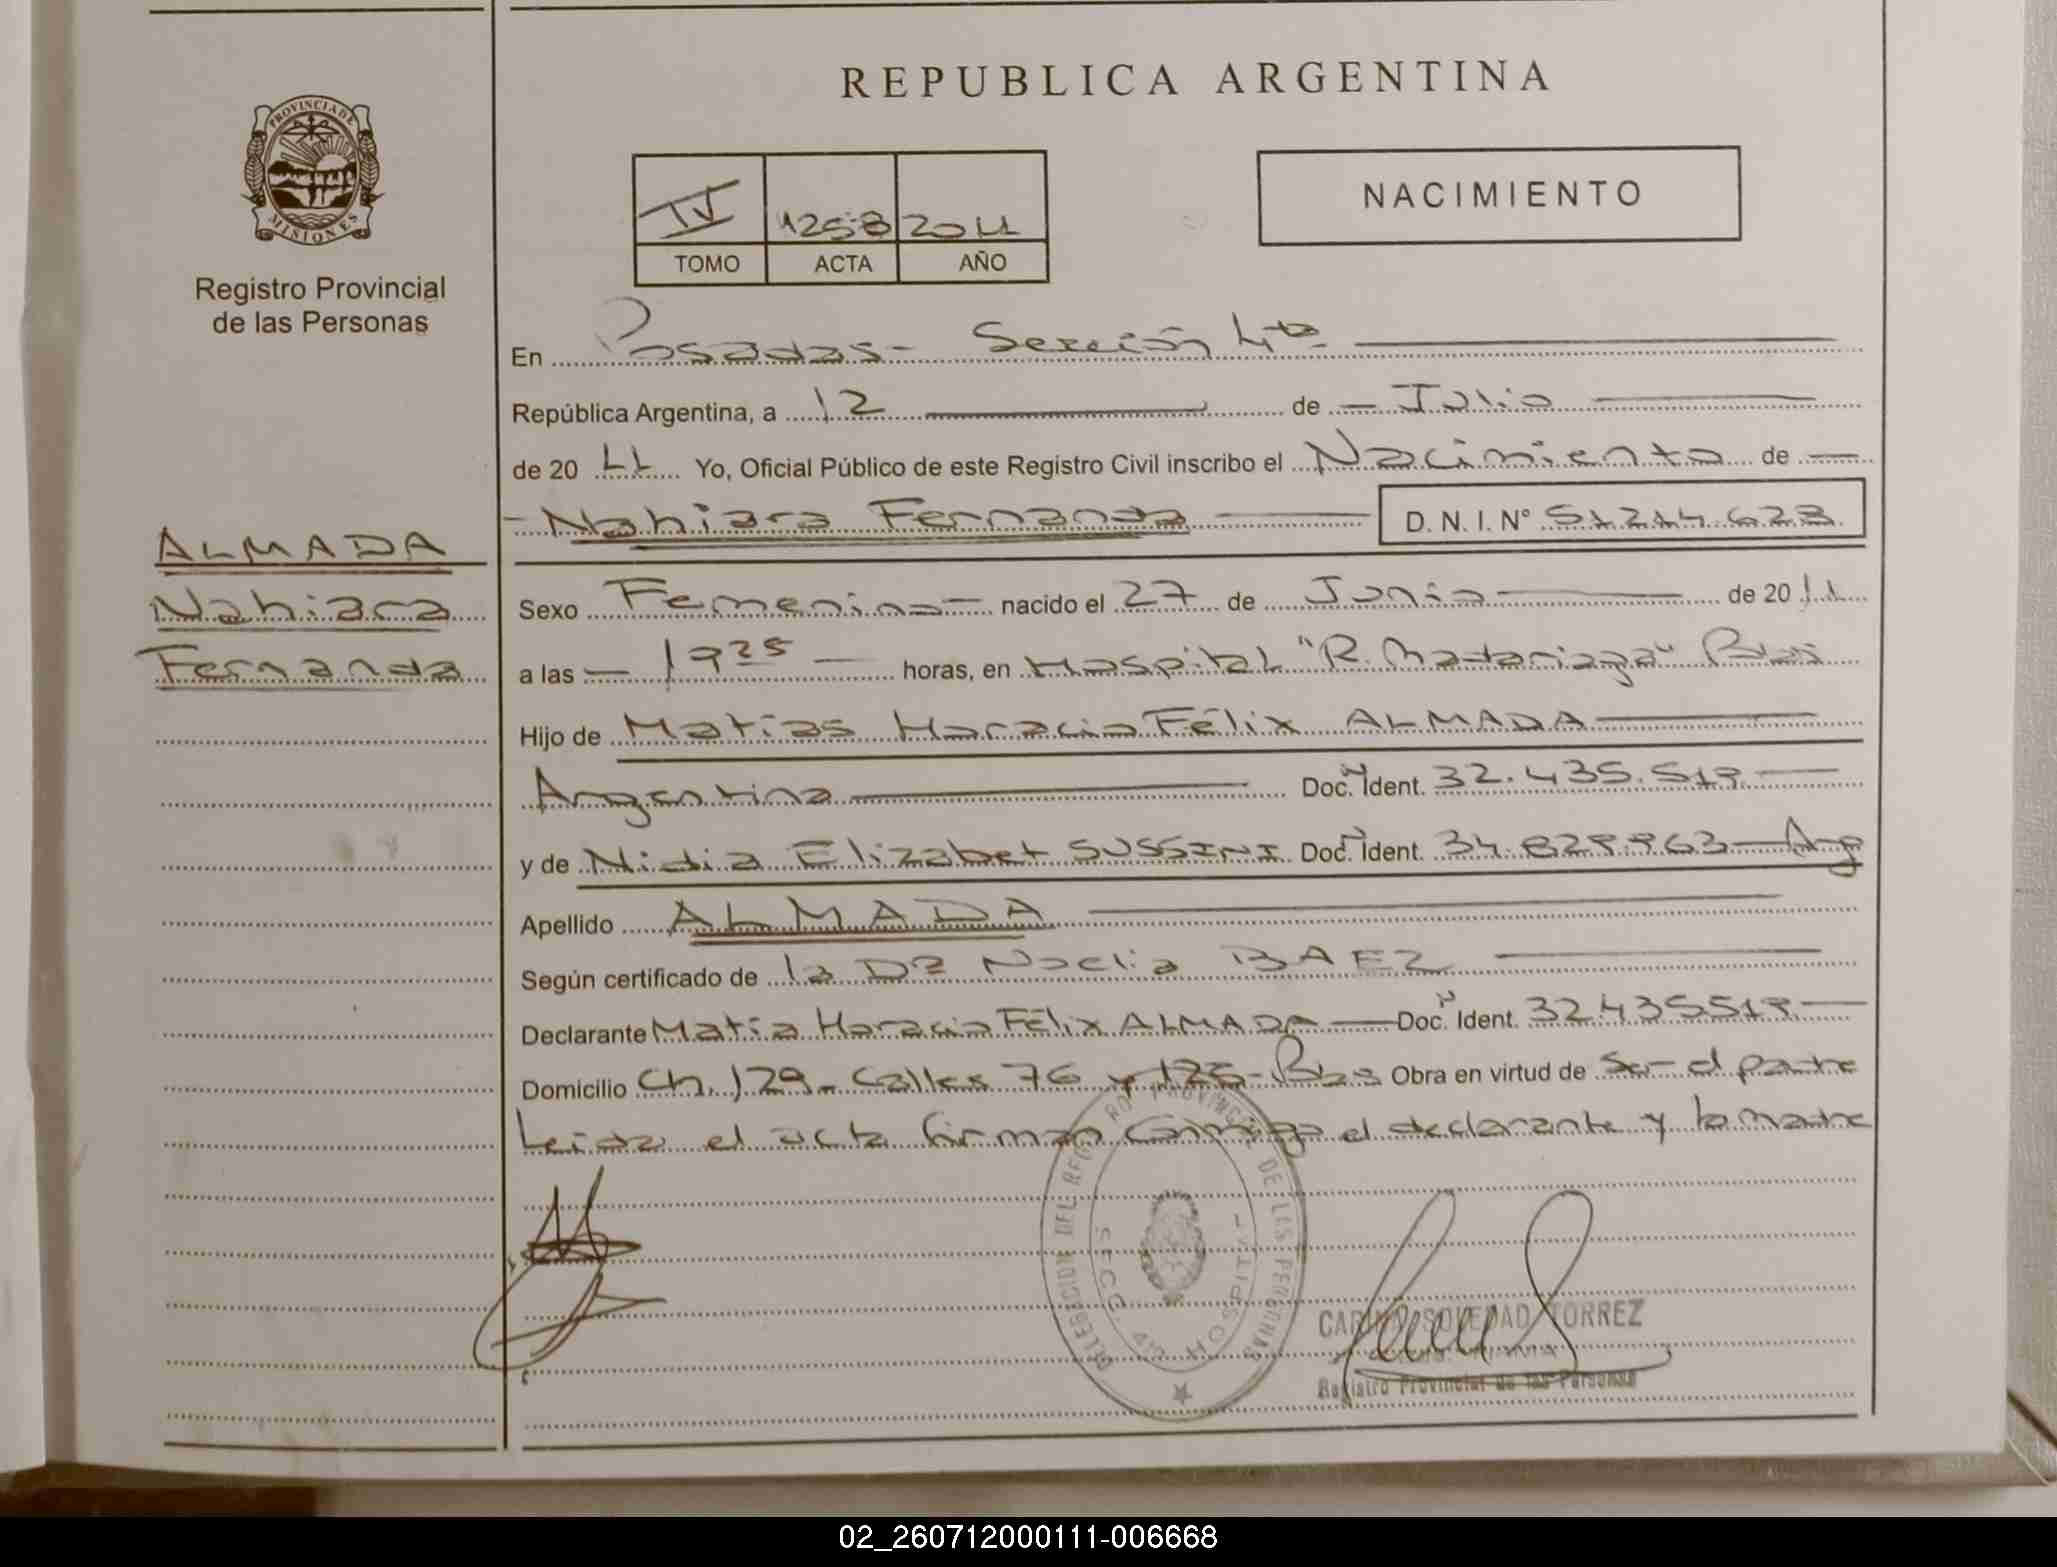 REPUBLICA ARGENTINA
PROVINCIA DE
MISIONES
Registro Provincial
de las Personas
IV 1258 2011
TOMO ACTA AÑO
NACIMIENTO
En Posadas - Sección 4ta
República Argentina, a 12 de Julio
de 20 11 Yo, Oficial Público de este Registro Civil inscribo el Nacimiento de
Nahiara Fernanda D.N.I. Nº 51214.623
ALMADA
Nahiara
Fernanda
Sexo Femenino nacido el 27 de Junio de 20 11
a las 19 25 horas, en Hospital "R. Madariaga"
Hijo de Matías Horacio Félix ALMADA
Argentina Doc. N Ident. 32.435.519
y de Nidia Elizabet SUSSINI Doc. N Ident. 34.829.963 Arg
Apellido ALMADA
Según certificado de la Dra Noelia BAEZ
Declarante Matía Horacio Félix ALMADA Doc. N Ident. 32435519
Domicilio Ch. 129 - Calles 76 y 125 - Obra en virtud de Ser el padre
Leida el acta firman conmigo el declarante y la madre
DELEGACION DEL REGISTRO PROVINCIAL DE LAS PERSONAS
SECC. 4ta HOSPITAL
CARINA SOLEDAD TORREZ
Registro Provincial de las Personas
02_260712000111-006668